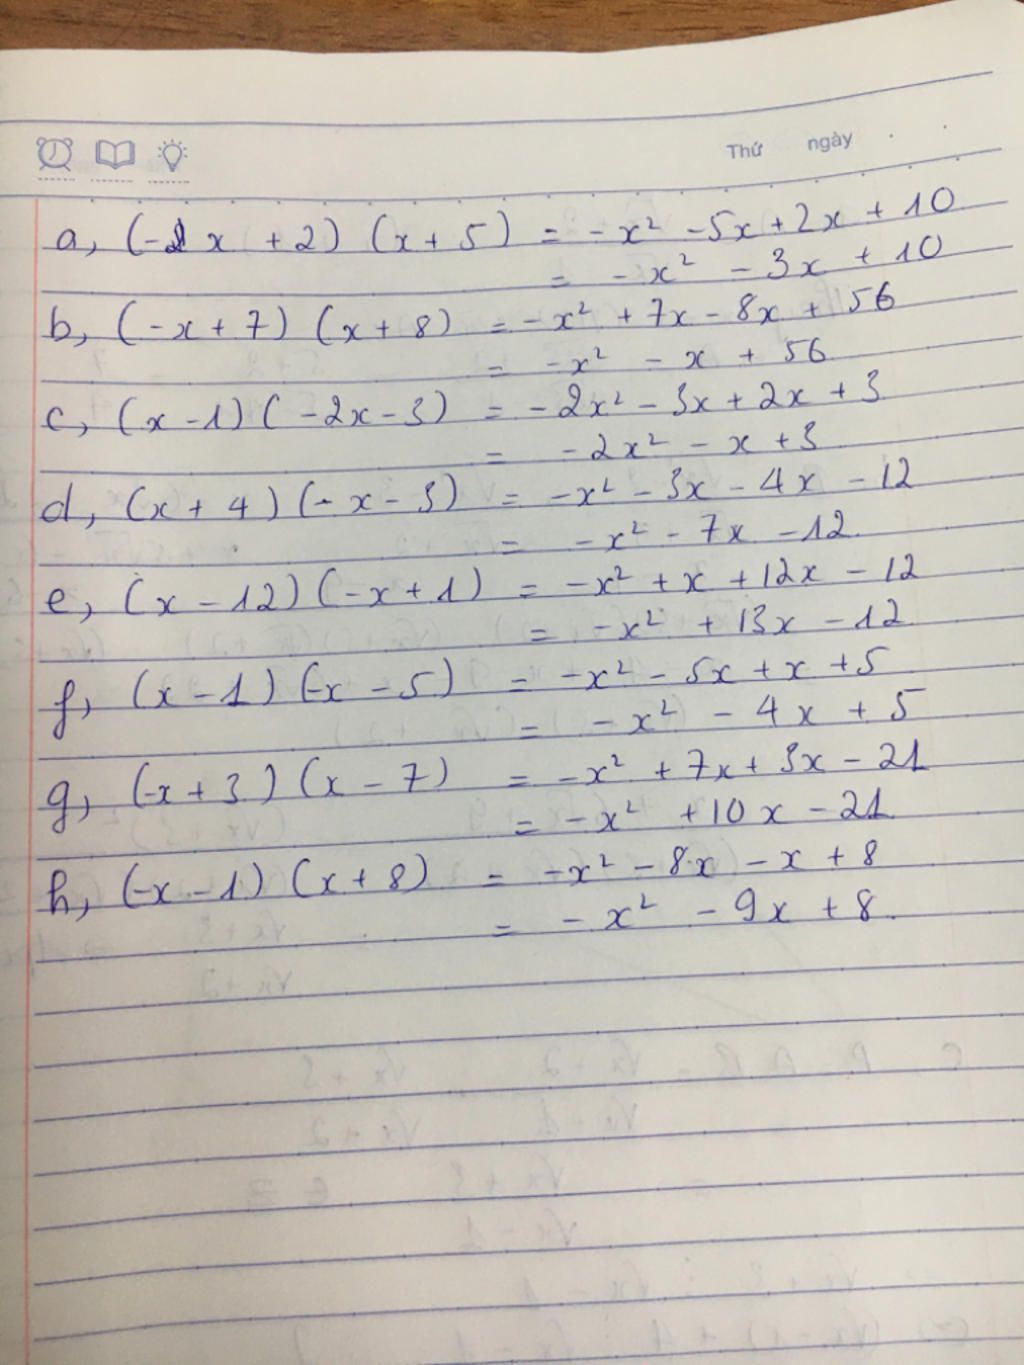 Thứ ngày
a, (-1x + 2) (x + 5) = -x² - 5x + 2x + 10
= -x² - 3x + 10
b, (-x + 7) (x + 8) = -x² + 7x - 8x + 56
= -x² - x + 56
c, (x - 1) (-2x - 3) = -2x² - 3x + 2x + 3
= -2x² - x + 3
d, (x + 4) (-x - 3) = -x² - 3x - 4x - 12
= -x² - 7x - 12
e, (x - 12) (-x + 1) = -x² + x + 12x - 12
= -x² + 13x - 12
f, (x - 1) (-x - 5) = -x² - 5x + x + 5
= -x² - 4x + 5
g, (-x + 3) (x - 7) = -x² + 7x + 3x - 21
= -x² + 10x - 21
h, (-x - 1) (x + 8) = -x² - 8x - x + 8
= -x² - 9x + 8